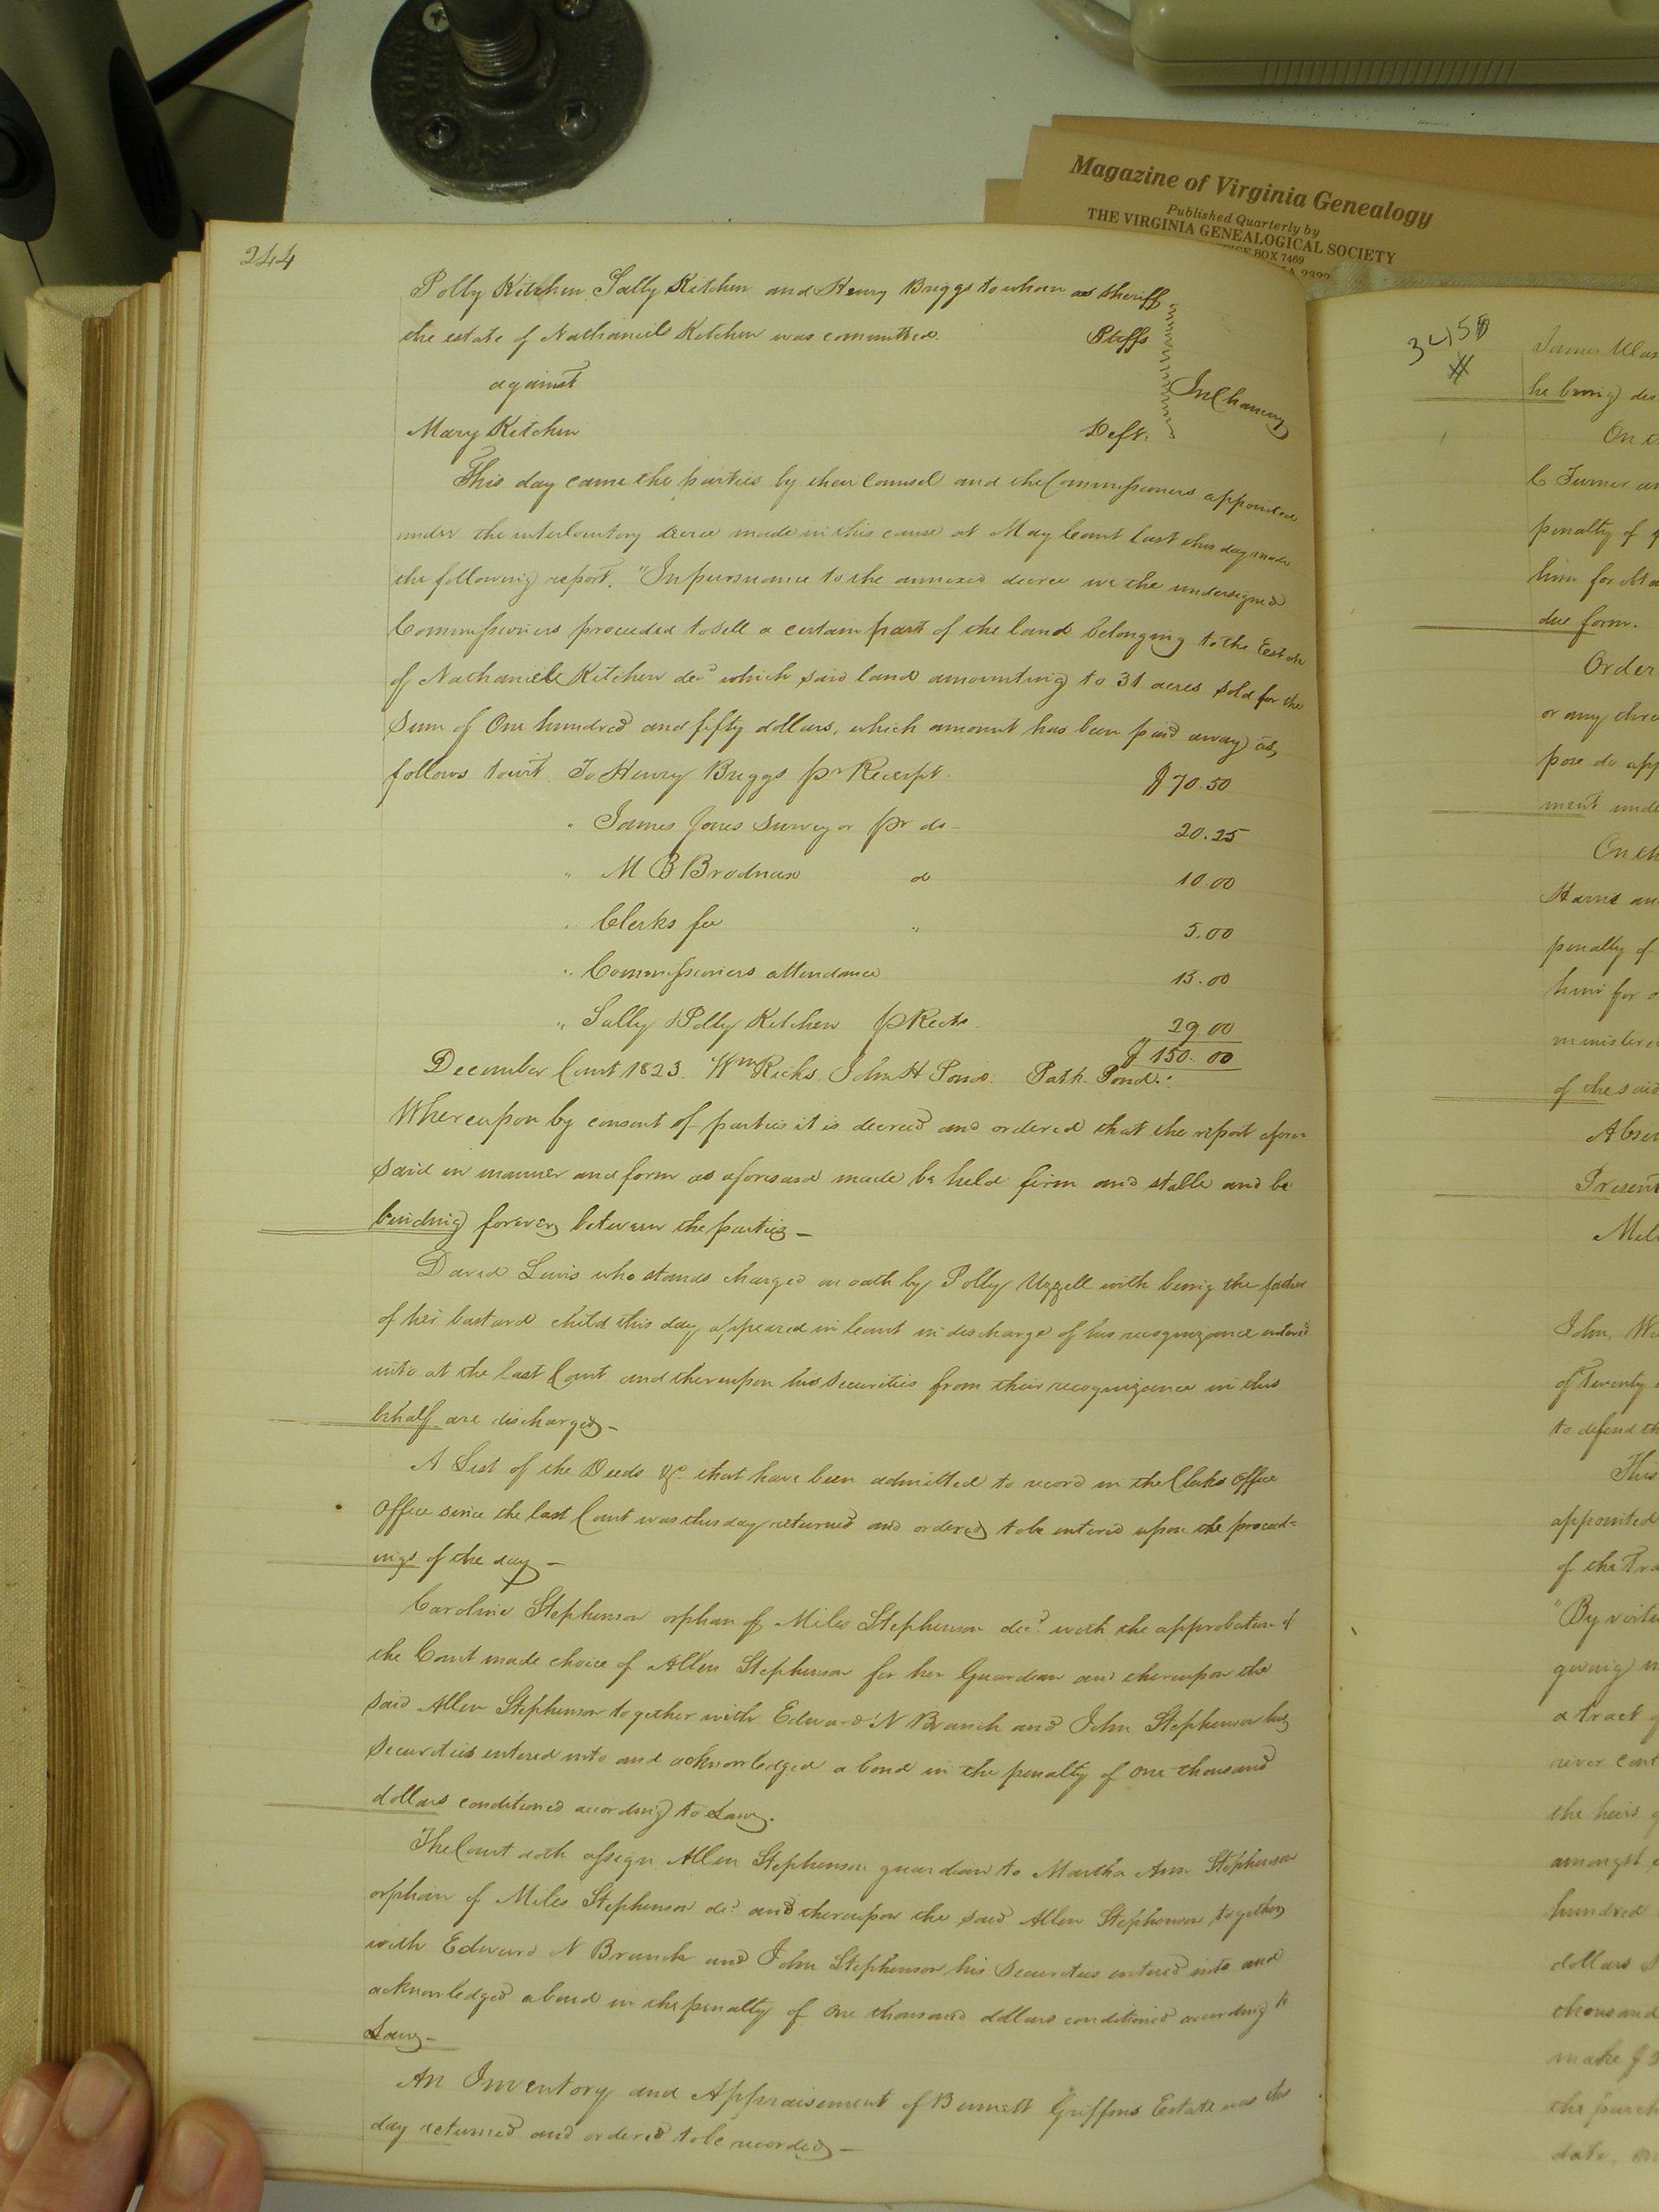 Magazine of Virginia Genealogy
Published Quarterly by
THE VIRGINIA GENEALOGICAL SOCIETY
BOX 7469
244
Polly Kitchen Sally Kitchen and Henry Briggs to whom as Sheriff
the estate of Nathaniel Kitchen was committed. Pltffs
against In Chancery
Mary Kitchen Deft.
This day came the parties by their Counsel and the Commissioners appointed
under the interlocutory decree made in this cause at May Court last this day made
the following report. "In pursuance to the annexed decree we the undersigned
Commissioners proceeded to sell a certain part of the land belonging to the Estate
of Nathaniel Kitchen decd which said land amounting to 31 acres sold for the
Sum of One hundred and fifty dollars, which amount has been paid away as
follows towit. To Henry Briggs pr Receipt. $70.50
" James Jones Surveyor pr do - 20.25
" M B Brodnax do 10.00
" Clerks fee " 5.00
" Commissioners attendance 15.00
" Sally & Polly Kitchen p Rects. 29.00
$150.00
December Court 1823. Wm Ricks. John H Pond. Path. Pond."
Whereupon by consent of parties it is decreed and ordered that the report afore=
said in manner and form as aforesaid made be held firm and stable and be
binding forever between the parties -
David Lewis who stands charged on oath by Polly Uzzell with being the father
of her bastard child this day appeared in Court in discharge of his recognizance entered
into at the last Court and thereupon his Securities from their recognizance in this
behalf are discharged -
A List of the Deeds &c. that have been admitted to record in the Clerks Office
Office since the last Court was this day returned and ordered to be entered upon the proceed=
ings of the day -
Caroline Stephenson orphan of Miles Stephenson decd. with the approbation of
the Court made choice of Allen Stephenson for her Guardian and thereupon the
said Allen Stephenson together with Edward N Branch and John Stephenson his
Securities entered into and acknowledged a bond in the penalty of one thousand
dollars conditioned according to Law.
The Court doth assign Allen Stephenson guardian to Martha Ann Stephenson
orphan of Miles Stephenson decd. and thereupon the said Allen Stephenson together
with Edward N Branch and John Stephenson his Securities entered into and
acknowledged a bond in the penalty of one thousand dollars conditioned according to
Law -
An Inventory and Appraisement of Burnett Griffins Estate was this
day returned and ordered to be recorded -
James
he being des
On
C Turner an
penalty of
him for
due form.
Order
or any three
pose do app
ment unde
On
Harris an
penalty of
him for
ministered
of the said
Absen
Present
John, W
of Twenty
to defend th
This
appointed
of the
"By virtu
giving
a tract
river
the heirs
amongst
hundred
dollars
thousand
make
the purch
date,